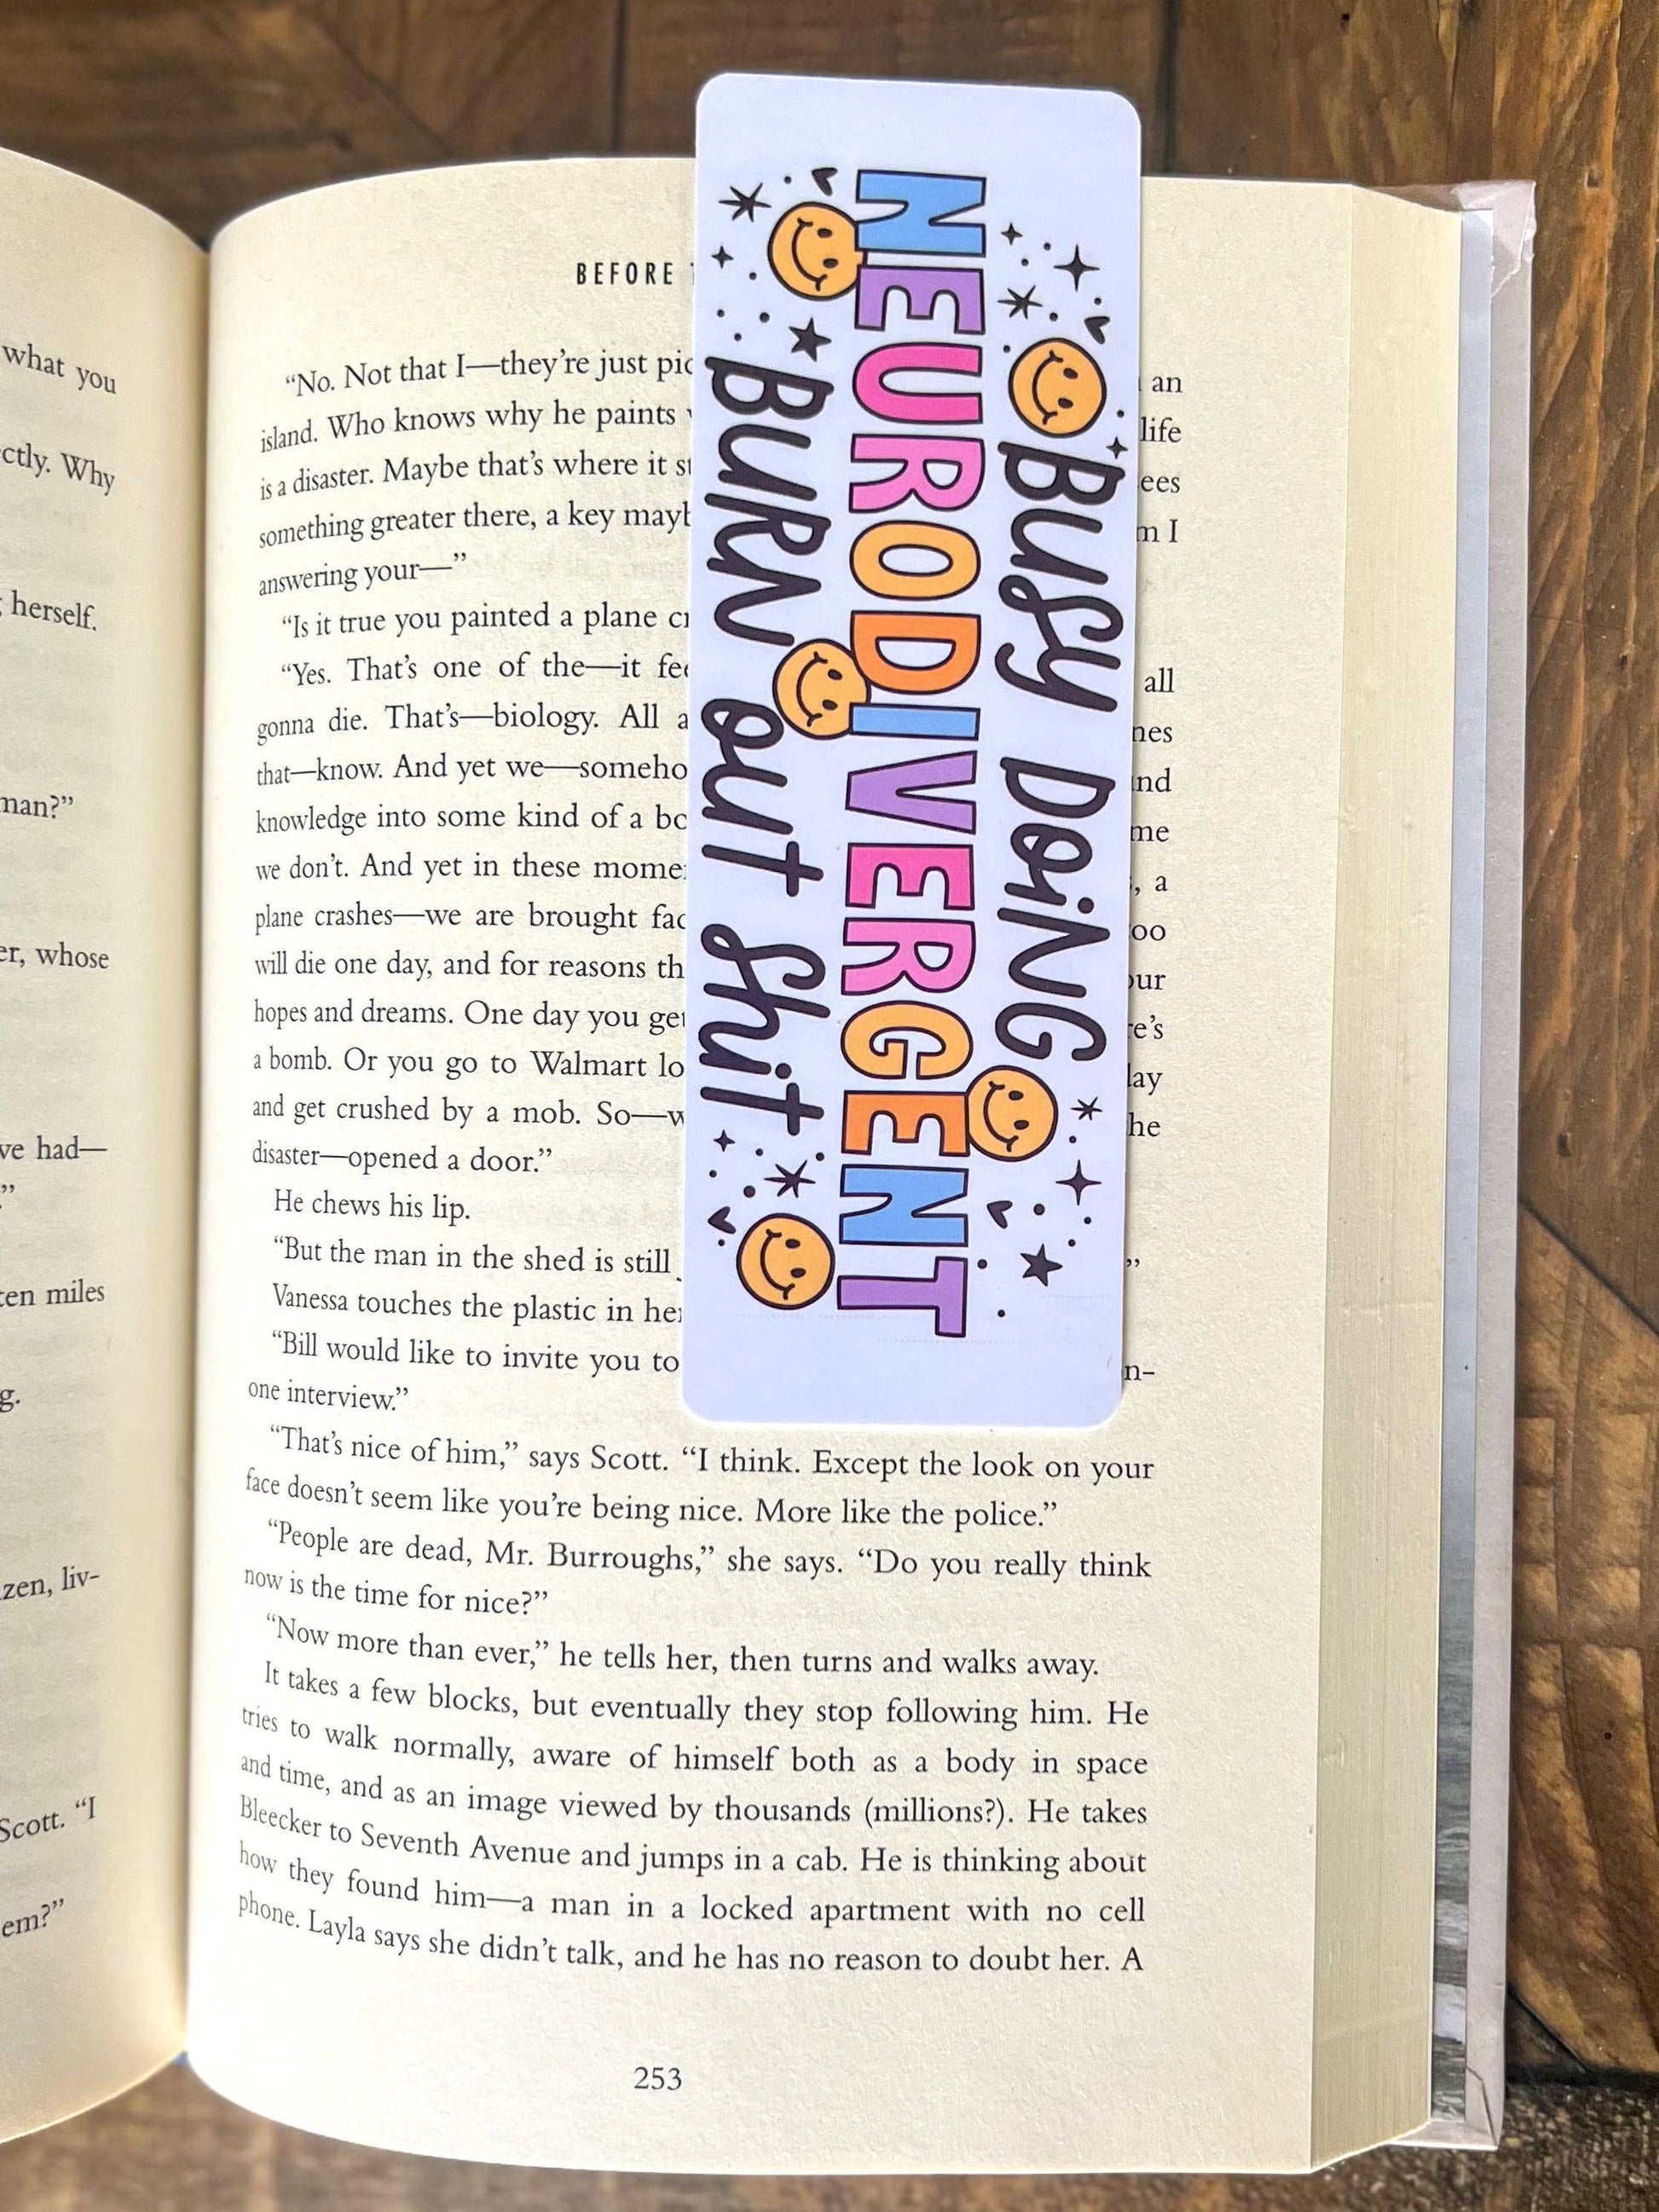 what you
ctly. Why
herself.
man?”
er, whose
ve had—
”
ten miles
g.
zen, liv-
Scott. “I
em?”
BEFORE
“No. Not that I—they’re just
an
island. Who knows why he paints
life
is a disaster. Maybe that’s where it
ees
something greater there, a key
m I
answering your—”
“Is it true you painted a plane
“Yes. That’s one of the—it
all
gonna die. That’s—biology. All
nes
that—know. And yet we—
nd
knowledge into some kind of a
me
we don’t. And yet in these
, a
plane crashes—we are brought
oo
will die one day, and for reasons
our
hopes and dreams. One day you
re’s
a bomb. Or you go to Walmart
lay
and get crushed by a mob. So—
he
disaster—opened a door.”
He chews his lip.
“But the man in the shed is still
”
Vanessa touches the plastic in
“Bill would like to invite you to
n-
one interview.”
“That’s nice of him,” says Scott. “I think. Except the look on your
face doesn’t seem like you’re being nice. More like the police.”
“People are dead, Mr. Burroughs,” she says. “Do you really think
now is the time for nice?”
“Now more than ever,” he tells her, then turns and walks away.
It takes a few blocks, but eventually they stop following him. He
tries to walk normally, aware of himself both as a body in space
and time, and as an image viewed by thousands (millions?). He takes
Bleecker to Seventh Avenue and jumps in a cab. He is thinking about
how they found him—a man in a locked apartment with no cell
phone. Layla says she didn’t talk, and he has no reason to doubt her. A
253
BUSY DOiNG
NEURODIVERGENT
BURN OUT Shit